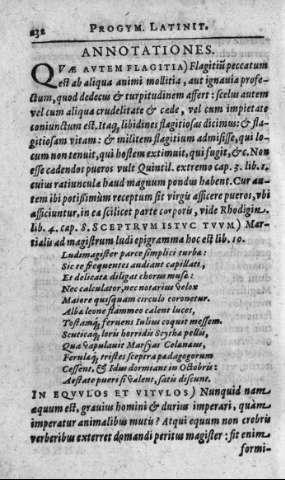 232 PROGYM. LATINIT.
ANNOTATIONES.
QVÆ AVTEM FLAGITIA) Flagitiũ peccatum
est ab aliqua animi mollitia, aut ignauia profe-
ctum, quod dedecus & turpitudinem affert: scelus autem
vel cum aliqua crudelitate & cæde, vel cum impietate
coniunctum est. Itaq; libidines flagitiosas dicimus: & fla-
gitiosam vitam: & militem flagitium admisisse, qui lo-
cum non tenuit, qui hostem extimuit, qui fugit, &c. Non
esse cædendos pueros vult Quintil. extremo cap. 3. lib. 1.
cuius ratiuncula haud magnum pondus habent. Cur au-
tem ibi potissimum receptum sit virgis afficere pueros, vbi
afficiuntur, in ea scilicet parte corporis, vide Rhodigin.
lib. 4. cap. 8. SCEPTRVM ISTVC TVVM) Mar-
tialis ad magistrum ludi epigramma hoc est lib. 10.
Ludimagister parce simplici turbæ:
Sic te frequentes audiant capillati,
Et delicatæ diligat chorus mensæ:
Nec calculator, nec notarius velox
Maiore quisquam circulo coronetur.
Albæ leone flammeo calent luces,
Tostamq; feruens Iulius coquit messem.
Scuticæq; loris horridis Scythæ pellis,
Qua vapulauit Marsyas Celænæus,
Ferulæq; tristes sceptra pædagogorum
Cessent, & Idus dormiant in Octobris:
Æstate pueri si valent, satis discunt.
IN EQVVLOS ET VITVLOS) Nunquid nam
æquum est, grauius homini & durius imperari, quàm
imperatur animalibus mutis? Atqui equum non crebris
verberibus exterret domandi peritus magister: fit enim
formi-